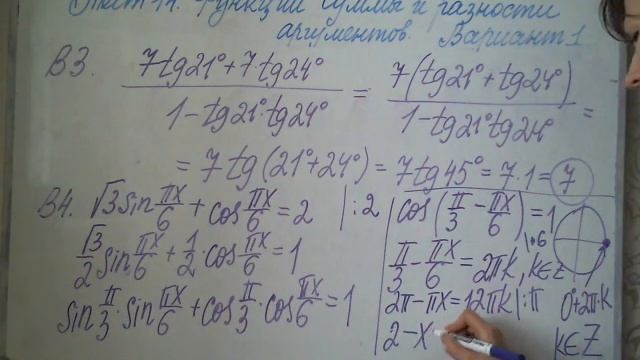 Тест 14. Функции суммы и разности
аргументов. Вариант 1
В3. (7tg21°+7tg24°)/(1-tg21°·tg24°) = 7(tg21°+tg24°)/(1-tg21°tg24°) =
= 7tg(21°+24°) = 7tg45° = 7·1 = 7
В4. √3sin πx/6 + cos πx/6 = 2 |:2
√3/2 sin πx/6 + 1/2·cos πx/6 = 1
sin π/3·sin πx/6 + cos π/3·cos πx/6 = 1
cos(π/3 - πx/6) = 1
|·6
π/3 - πx/6 = 2πk, k∈Z
2π-πx=12πk |:π
0+2π·k
2-x
k∈Z